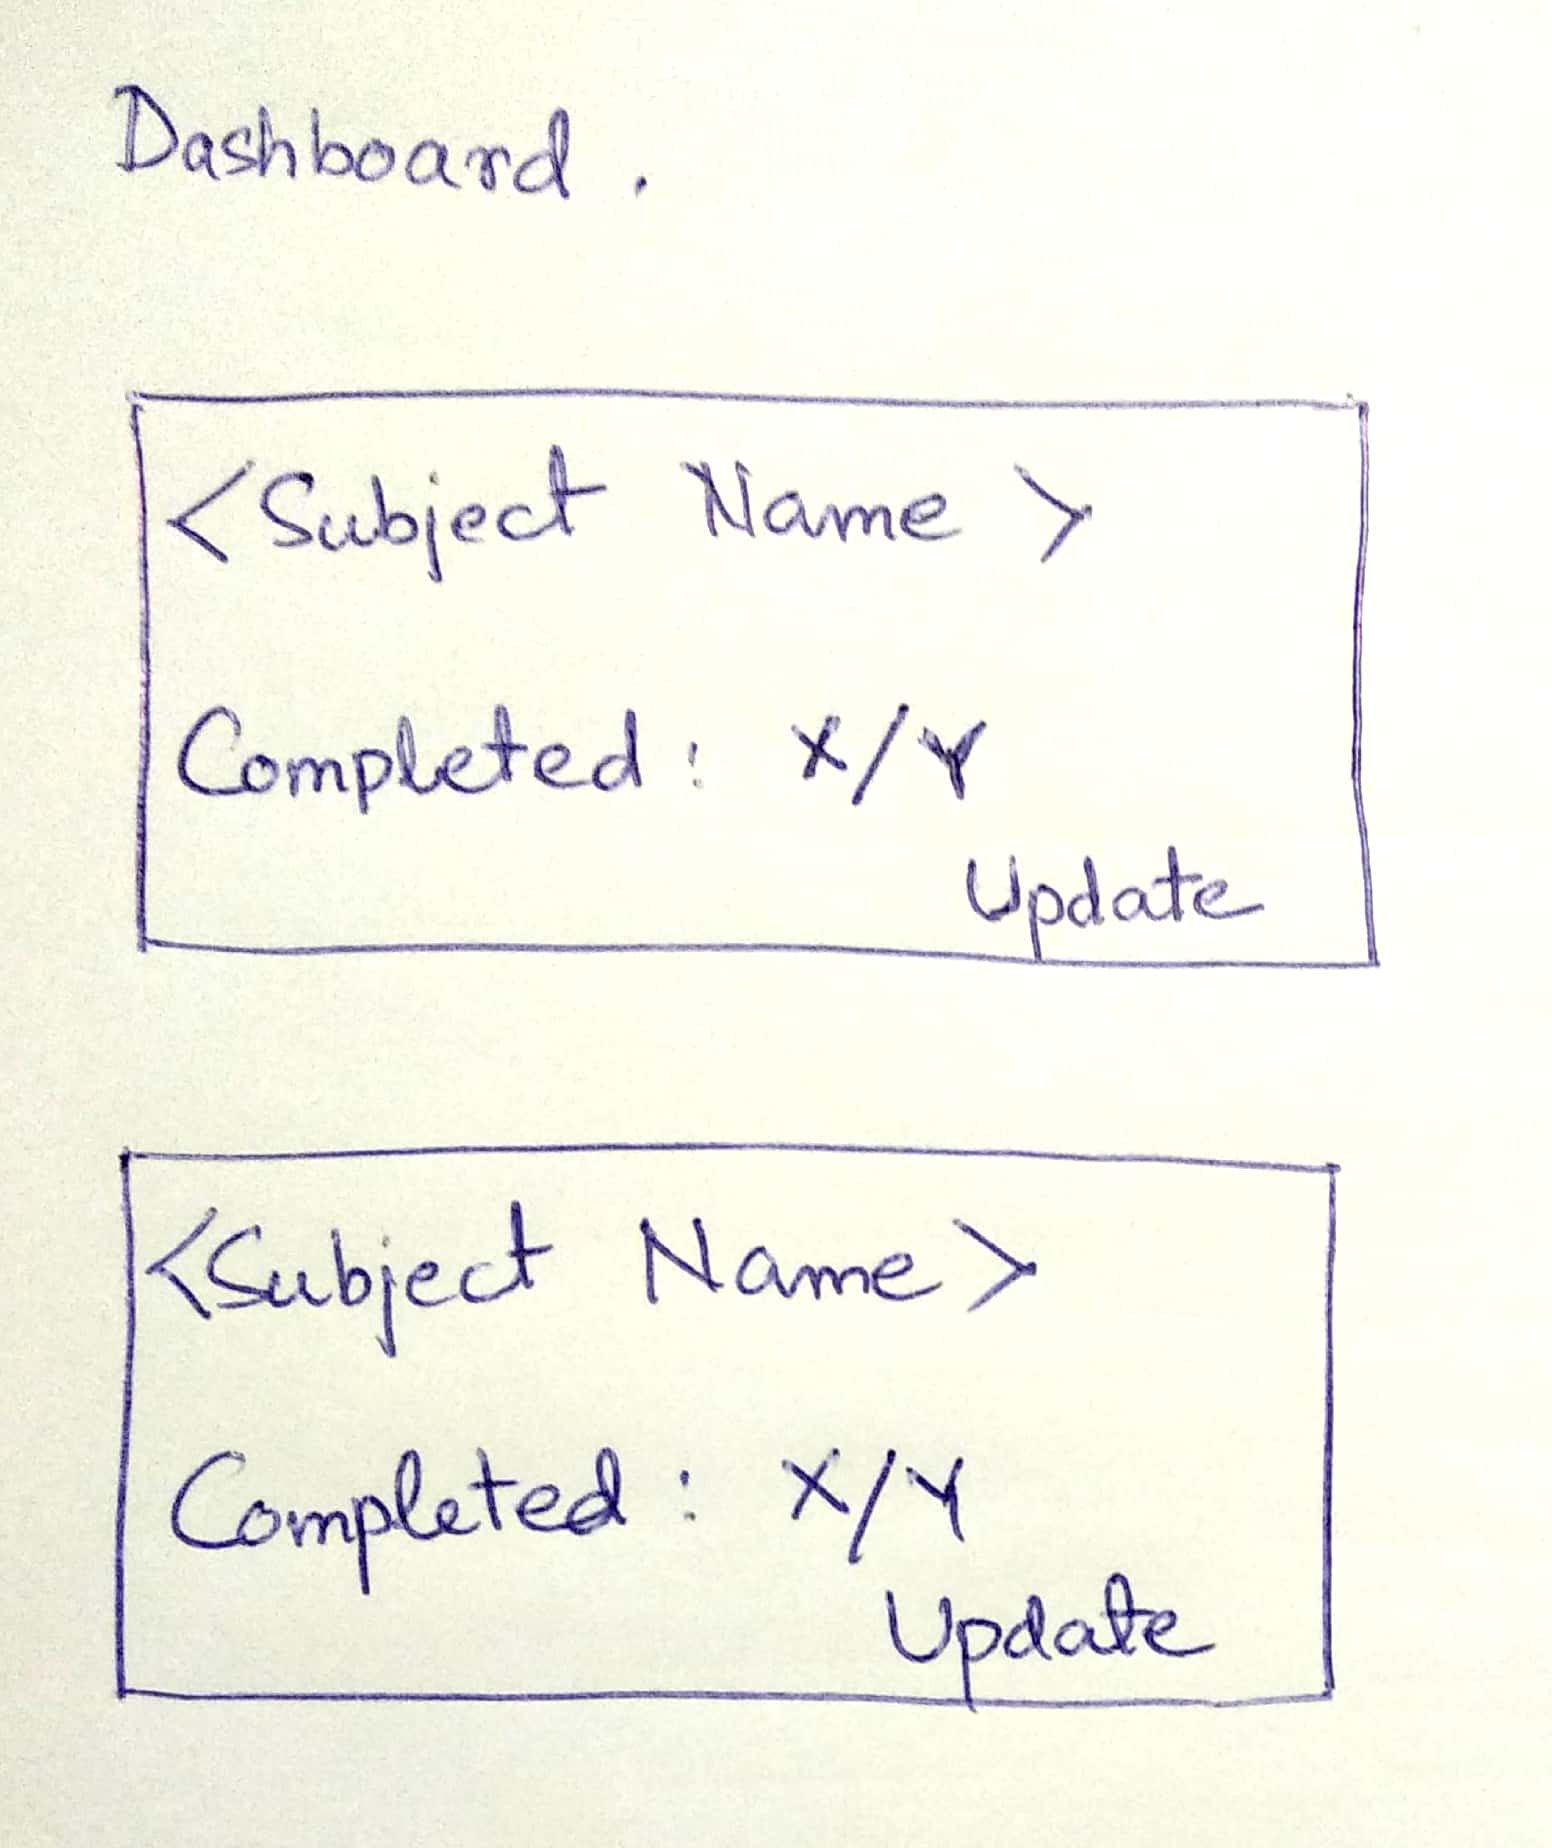 Dashboard.
<Subject Name>
Completed: X/Y
Update
<Subject Name>
Completed: X/Y
Update